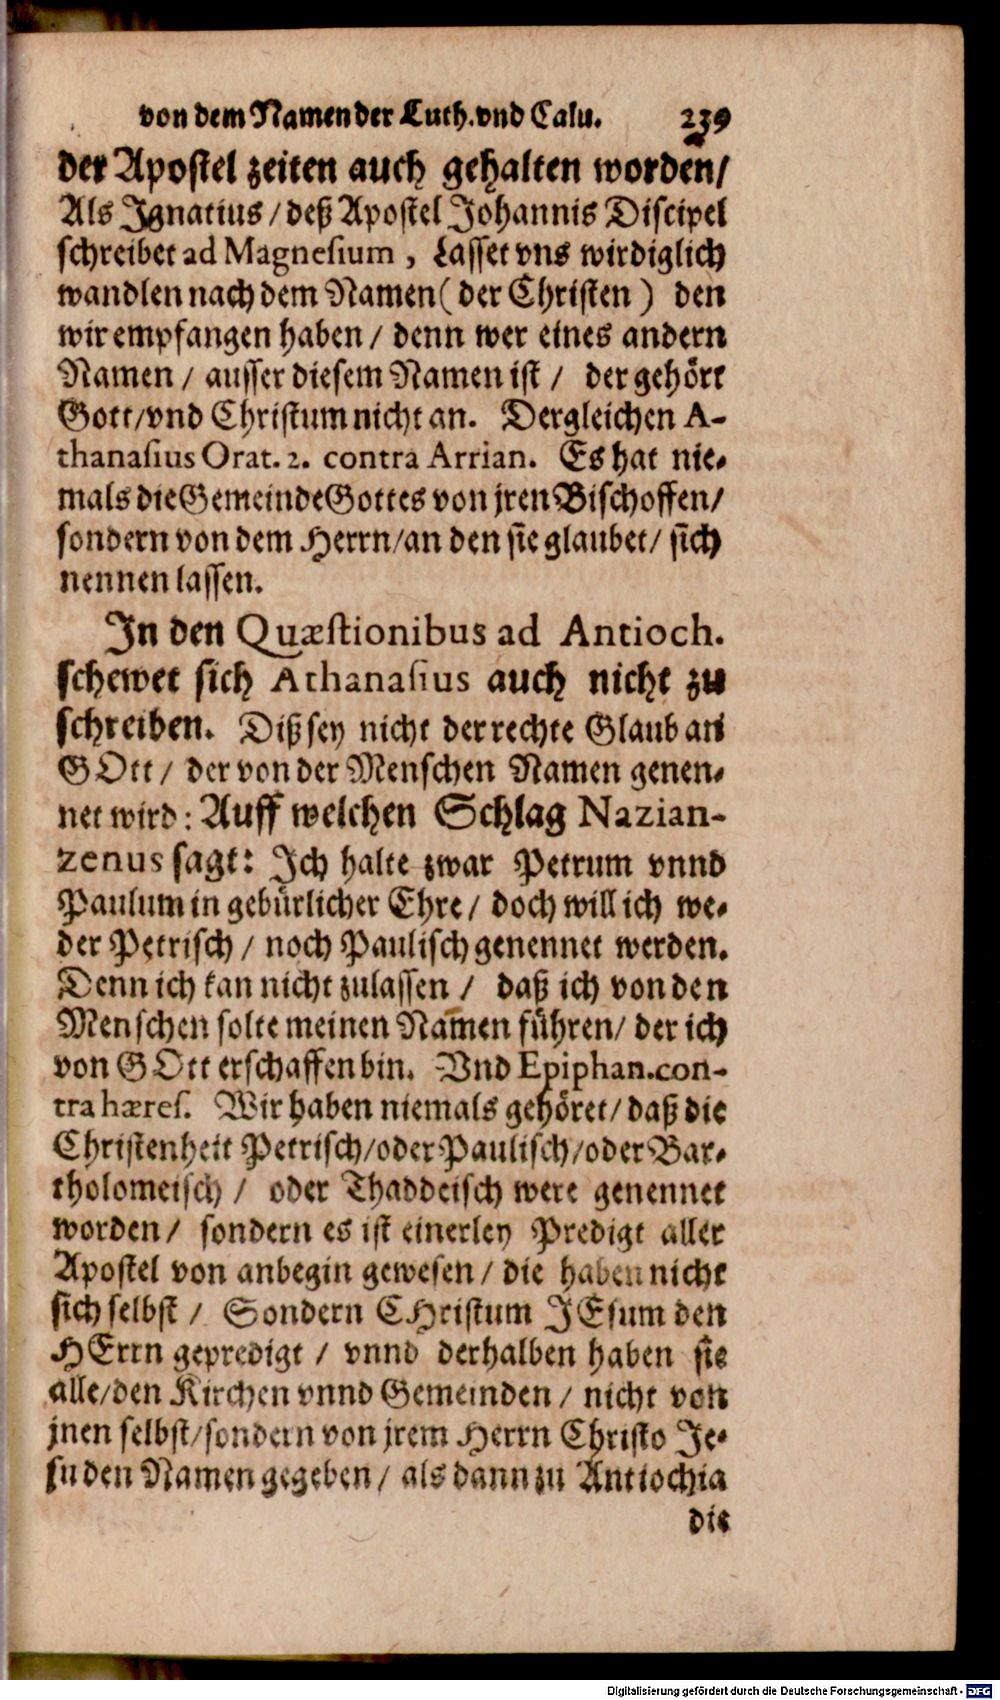 von dem Namen der Luth. vnd Calu. 239
der Apostel zeiten auch gehalten worden/
Als Ignatius / deß Apostel Johannis Discipel
schreibet ad Magnesium , Lasset vns wirdiglich
wandlen nach dem Namen ( der Christen ) den
wir empfangen haben / denn wer eines andern
Namen / ausser diesem Namen ist / der gehört
Gott/vnd Christum nicht an. Dergleichen A-
thanasius Orat. 2. contra Arrian. Es hat nie-
mals die Gemeinde Gottes von jren Bischoffen/
sondern von dem Herrn/an den sie glaubet/ sich
nennen lassen.
In den Quæstionibus ad Antioch.
schewet sich Athanasius auch nicht zu
schreiben. Diß sey nicht der rechte Glaub an
GOtt / der von der Menschen Namen genen-
net wird : Auff welchen Schlag Nazian-
zenus sagt: Ich halte zwar Petrum vnnd
Paulum in gebürlicher Ehre / doch will ich we-
der Petrisch / noch Paulisch genennet werden.
Denn ich kan nicht zulassen / daß ich von den
Menschen solte meinen Namen führen/ der ich
von GOtt erschaffen bin. Vnd Epiphan. con-
tra hæres. Wir haben niemals gehöret/ daß die
Christenheit Petrisch/oder Paulisch/oder Bar-
tholomeisch / oder Thaddeisch were genennet
worden / sondern es ist einerley Predigt aller
Apostel von anbegin gewesen / die haben nicht
sich selbst / Sondern CHristum JEsum den
HErrn gepredigt / vnnd derhalben haben sie
alle/den Kirchen vnnd Gemeinden / nicht von
jnen selbst/sondern von jrem Herrn Christo Je-
su den Namen gegeben / als dann zu Antiochia
die
Digitalisierung gefördert durch die Deutsche Forschungsgemeinschaft - DFG